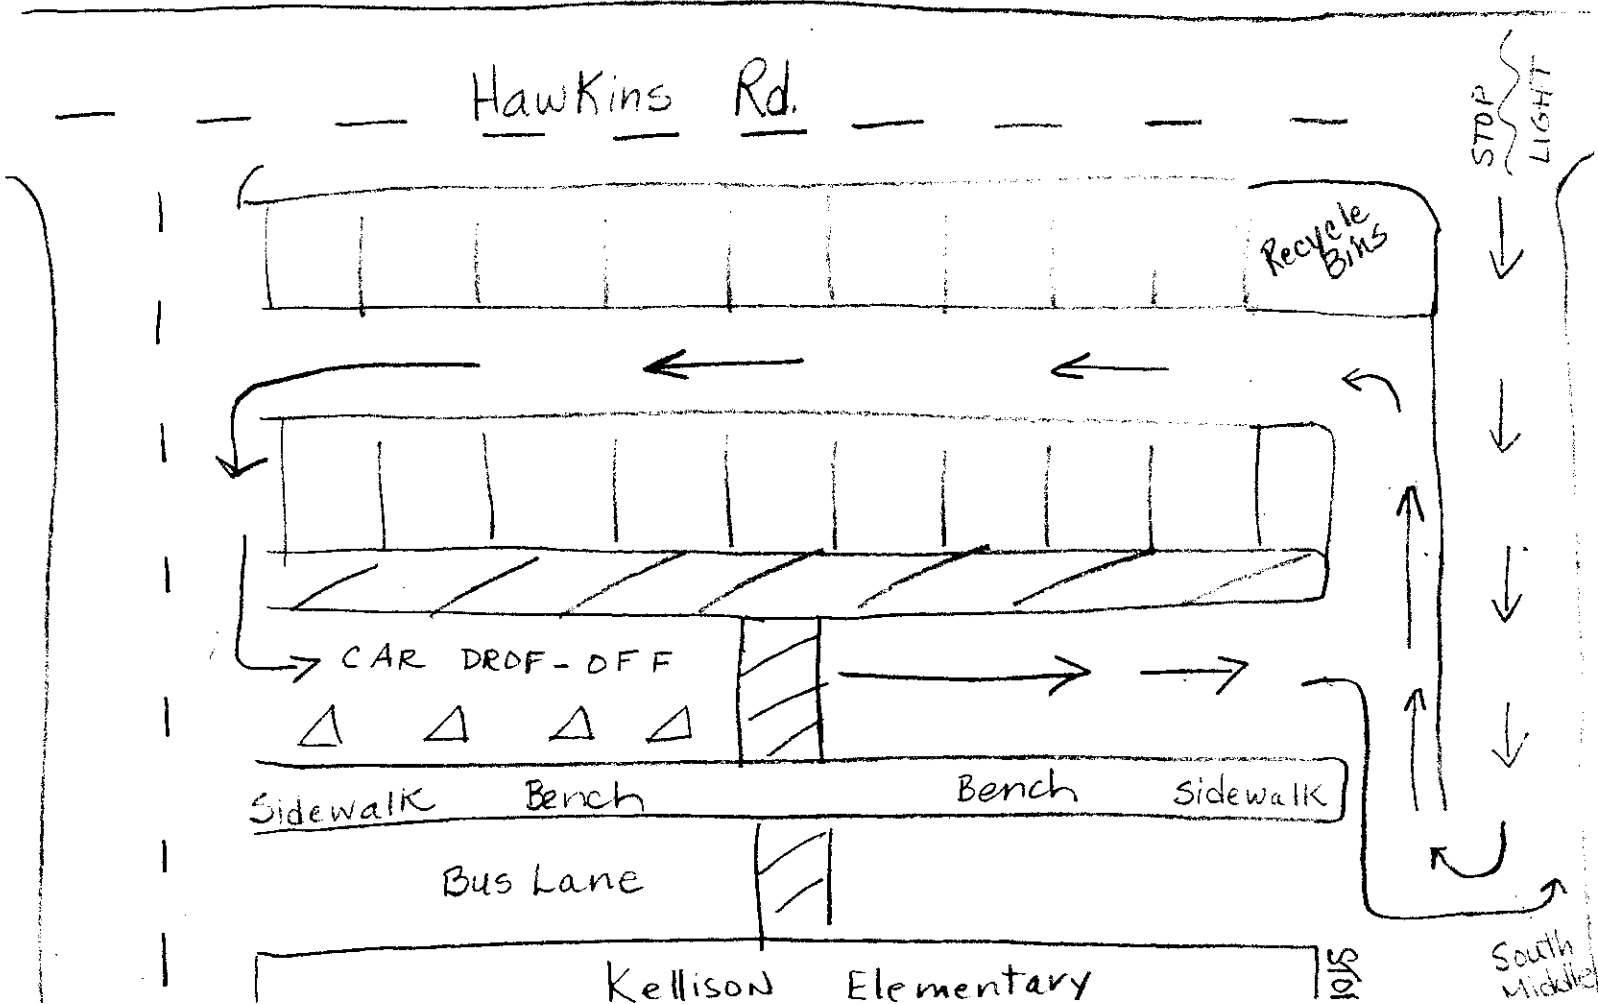 Hawkins Rd.
STOP
LIGHT
Recycle
Bins
CAR DROF-OFF
Sidewalk Bench Bench Sidewalk
Bus Lane
Kellison Elementary
South
Middle